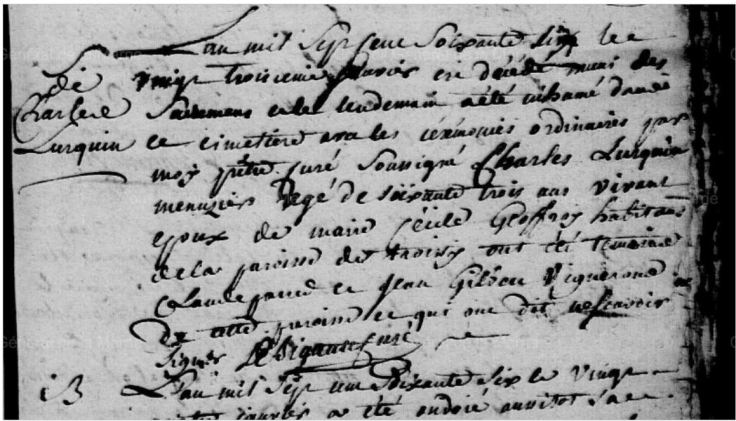 L'an mil sept cent soixante six le
vingt troisieme est décédé muni des
De
Charle
Lurquin
Sacremens et le lendemain a été inhumé dans
ce cimetiere avec les cérémonies ordinaires par
moy prêtre curé soussigné Charles Lurquin
menuzier agé de soixante trois ans vivant
epoux de marie Cécile Geoffroy habitans
de la paroisse de troissy ont été temoins
Claude et Jean Vignerons
de cette paroisse et qui ont dit ne scavoir
signer curé
13
L'an mil sept cent soixante six le vingt
a été ondoié aussitot sa